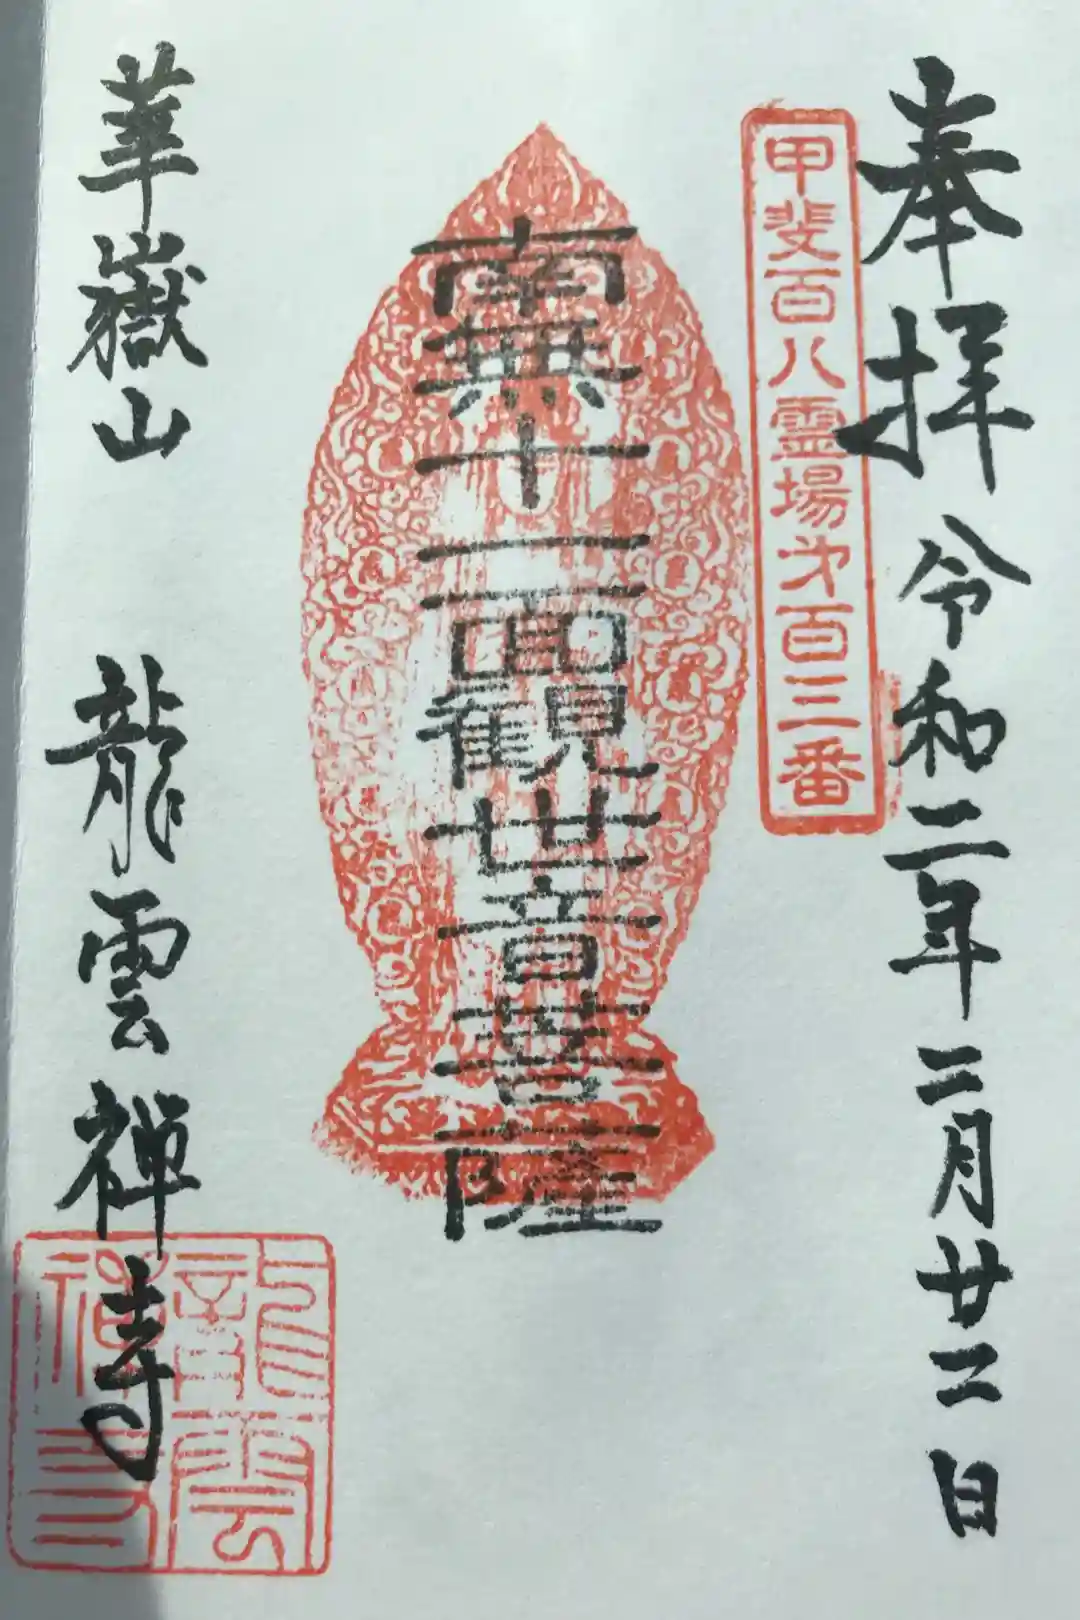 奉拝 令和二年三月廿二日
甲斐百八霊場第百三番
南無十一面観世音菩薩
華嶽山 龍雲禅寺
龍雲
禅寺